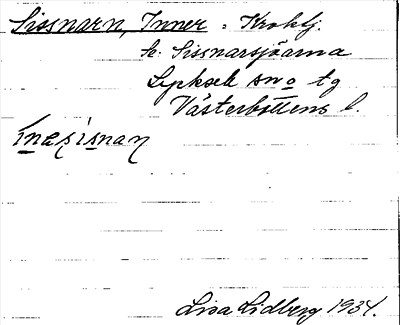 Sissnarn, Inner = Kroktj.
se Sissnarsjöarna
Lycksele sn o tg
Västerbottens l.
ìnesìsnan
Lisa Lidberg 1934.